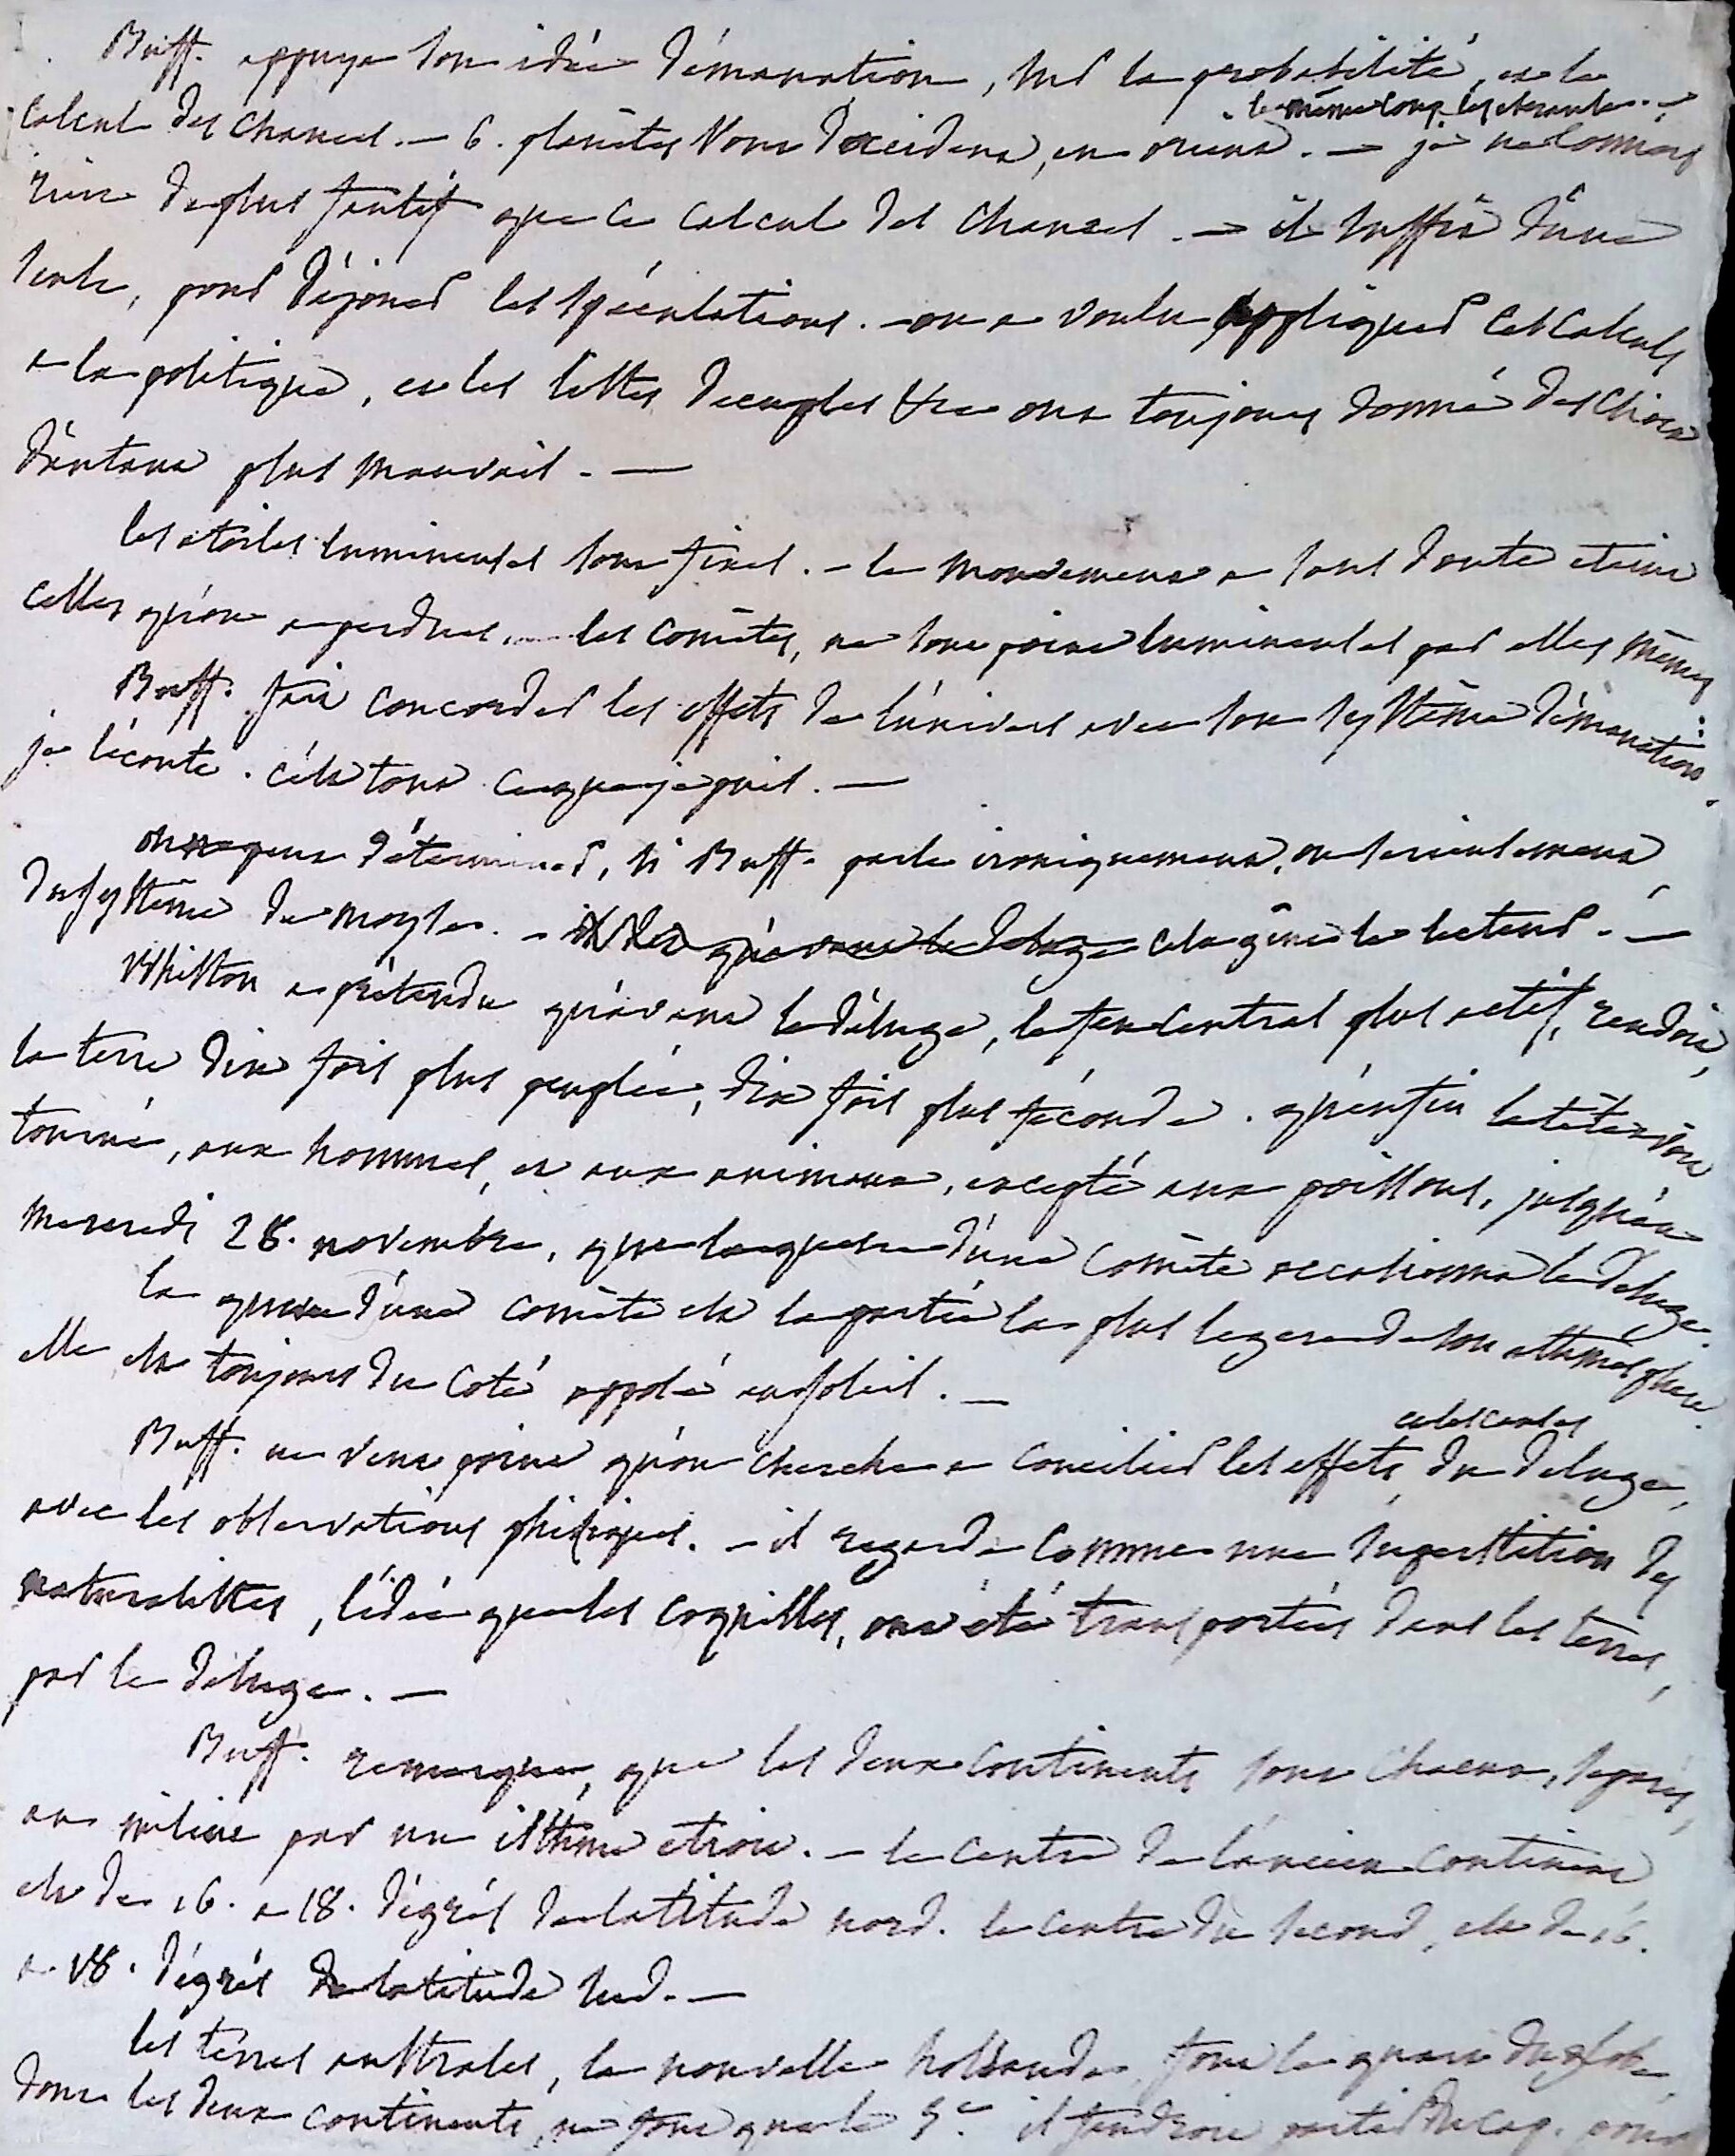 Buff. appuye son idée d'émanation, sur la probabilité, et le
le même sens, les
calcul des chances. — 6. planètes vont d'occident, en orient. — je ne connois
rien de plus fautif que ce calcul des chances. — il suffit d'une
seule, pour déjouer les spéculations. — on a voulu appliquer ces calculs
a la politique, et les listes decuples &ca ont toujours donné des choix
d'autant plus mauvais. —
les etoiles lumineuses sont fixes. — le mouvement a sans doute eteint
celles qu'on a perdues. les comètes, ne sont point lumineuses par elles mêmes
Buff. fait concorder les effets de l'univers avec son systême d'émanation.
je l'écoute. c'est tout ce que je puis. —
on ne peut déterminer, si Buff. parle ironiquement, ou serieusement,
du systême de moyse. — cela gêne le lecteur. —
Whiston a prétendu qu'avant le déluge, le feu central plus actif, rendoit,
la terre dix fois plus peuplée, dix fois plus féconde. qu'enfin la tête avoit
tourné, aux hommes, et aux animaux, excepté aux poissons, jusqu'au
mercredi 28. novembre, que la queue d'une comète occasionna le deluge.
la queue d'une comète est la partie la plus legere de son atmosphere.
elle est toujours du coté opposé au soleil. —
et les causes
Buff. ne veut point qu'on cherche a concilier les effets, du deluge,
avec les observations phisiques. — il regarde comme une superstition des
naturalistes, l'idée que les coquilles, ont été transportées dans les terres,
par le déluge. —
Buff. remarque, que les deux continents sont chacun, separés,
au milieu par un isthme etroit. — le centre de l'ancien continent
est de 16. a 18. dégrés de latitude nord. le centre du second, est de 16.
a 18. dégrés de latitude sud. —
les terres australes, la nouvelle hollande, font le quart du globe,
donc les deux continents, ne font que le il faudroit partir du cap.